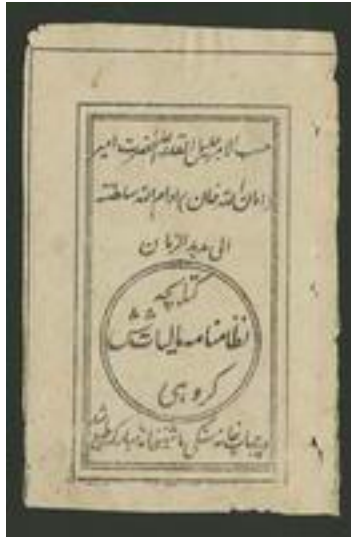 حسب الامر جلیل القدر اعلیحضرت امیر
امان الله خان ادام الله سلطنته
الی مدید الزمان
کتابچه
نظامنامه مالیات شش
کروهی
در چاپخانه سنگی ماشینخانه مبارکه طبع شد